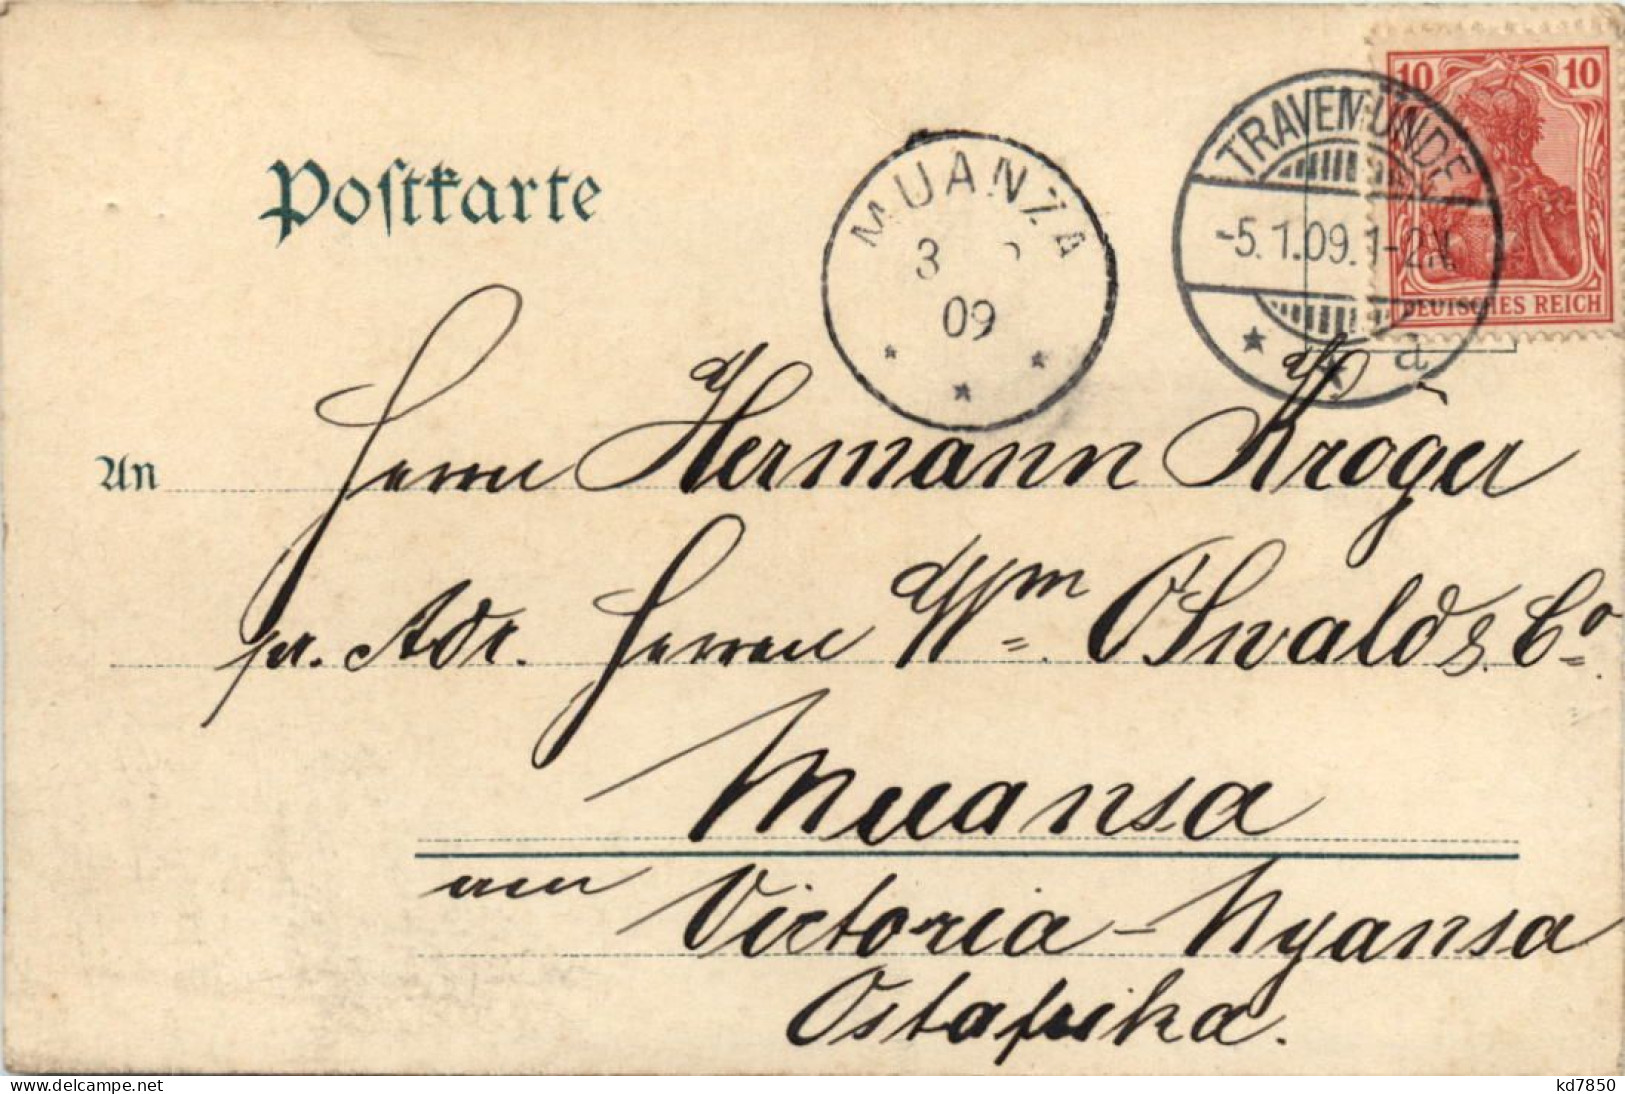 Postkarte
MUANZA
3
09
TRAVEMÜNDE
-5.1.09.1-2N.
a
10 10
DEUTSCHES REICH
An Herrn Hermann Kröger
pr. Adr. Herren Wm. Oswald & Co.
Muansa
am Victoria-Nyansa
Ostafrika.
www.delcampe.net
kd7850